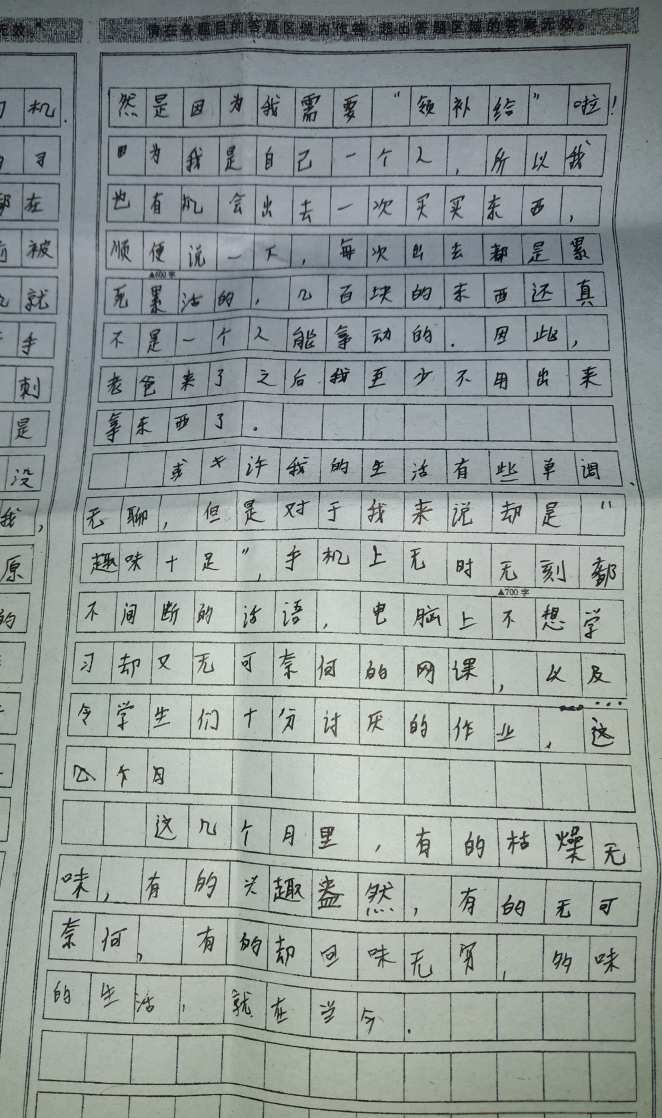 请在各题目的答题区域内作答，超出答题区域的答案无效。
无效。
机.
可
都在
被
就
手
刺
是
没
我,
原
的
然是因为我需要“领补给”啦!
因为我是自己一个人,所以我
也有机会出去一次买买东西,
顺便说一下,每次出去都是累
▲600字
死累活的,几百块的东西还真
不是一个人能拿动的.因此,
老爸来了之后我至少不用出来
拿东西了.
或许我的生活有些单调、
无聊,但是对于我来说却是“
趣味十足”,手机上无时无刻都
▲700字
不间断的话语,电脑上不想学
习却又无可奈何的网课,以及
令学生们十分讨厌的作业,这
几个月
这几个月里,有的枯燥无
味,有的兴趣盎然,有的无可
奈何,有的却回味无穷,多味
的生活,就在当今.